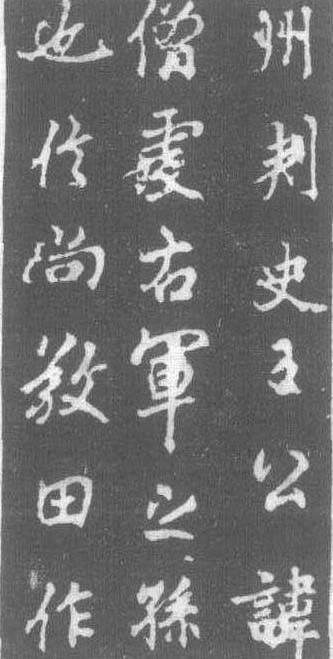 州刺史王公諱
僧虔右軍之孫
也信尚敬田作